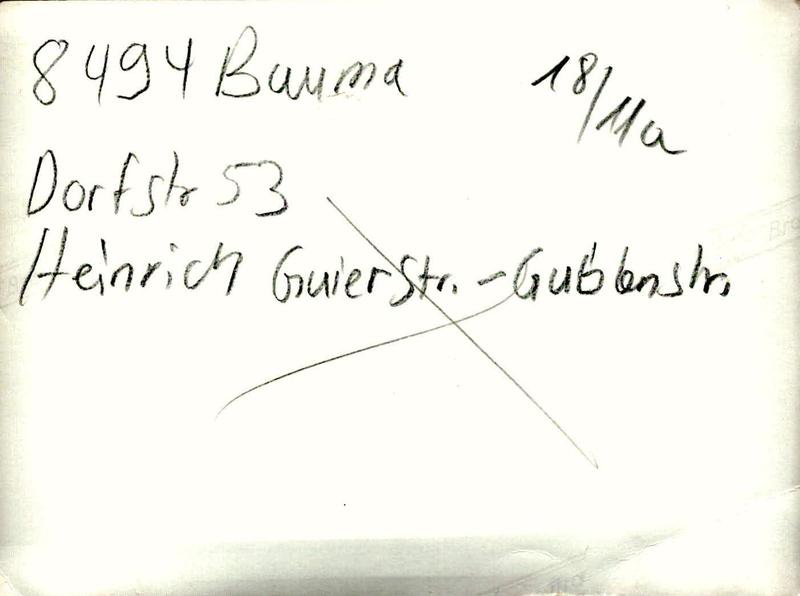 8494 Bauma
18/11a
Dorfstr 53
Heinrich Gujerstr. - Gublenstr.